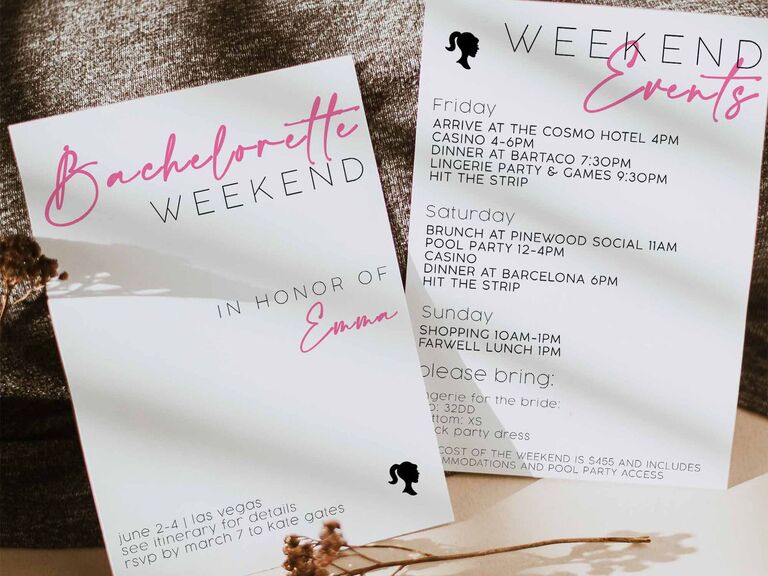 Bachelorette
WEEKEND
IN HONOR OF
Emma
june 2-4 | las vegas
see itinerary for details
rsvp by march 7 to kate gates
WEEKEND
Events
Friday
ARRIVE AT THE COSMO HOTEL 4PM
CASINO 4-6PM
DINNER AT BARTACO 7:30PM
LINGERIE PARTY & GAMES 9:30PM
HIT THE STRIP
Saturday
BRUNCH AT PINEWOOD SOCIAL 11AM
POOL PARTY 12-4PM
CASINO
DINNER AT BARCELONA 6PM
HIT THE STRIP
Sunday
SHOPPING 10AM-1PM
FARWELL LUNCH 1PM
please bring:
for the bride:
32DD
XS
party dress
COST OF THE WEEKEND IS $455 AND INCLUDES
AND POOL PARTY ACCESS